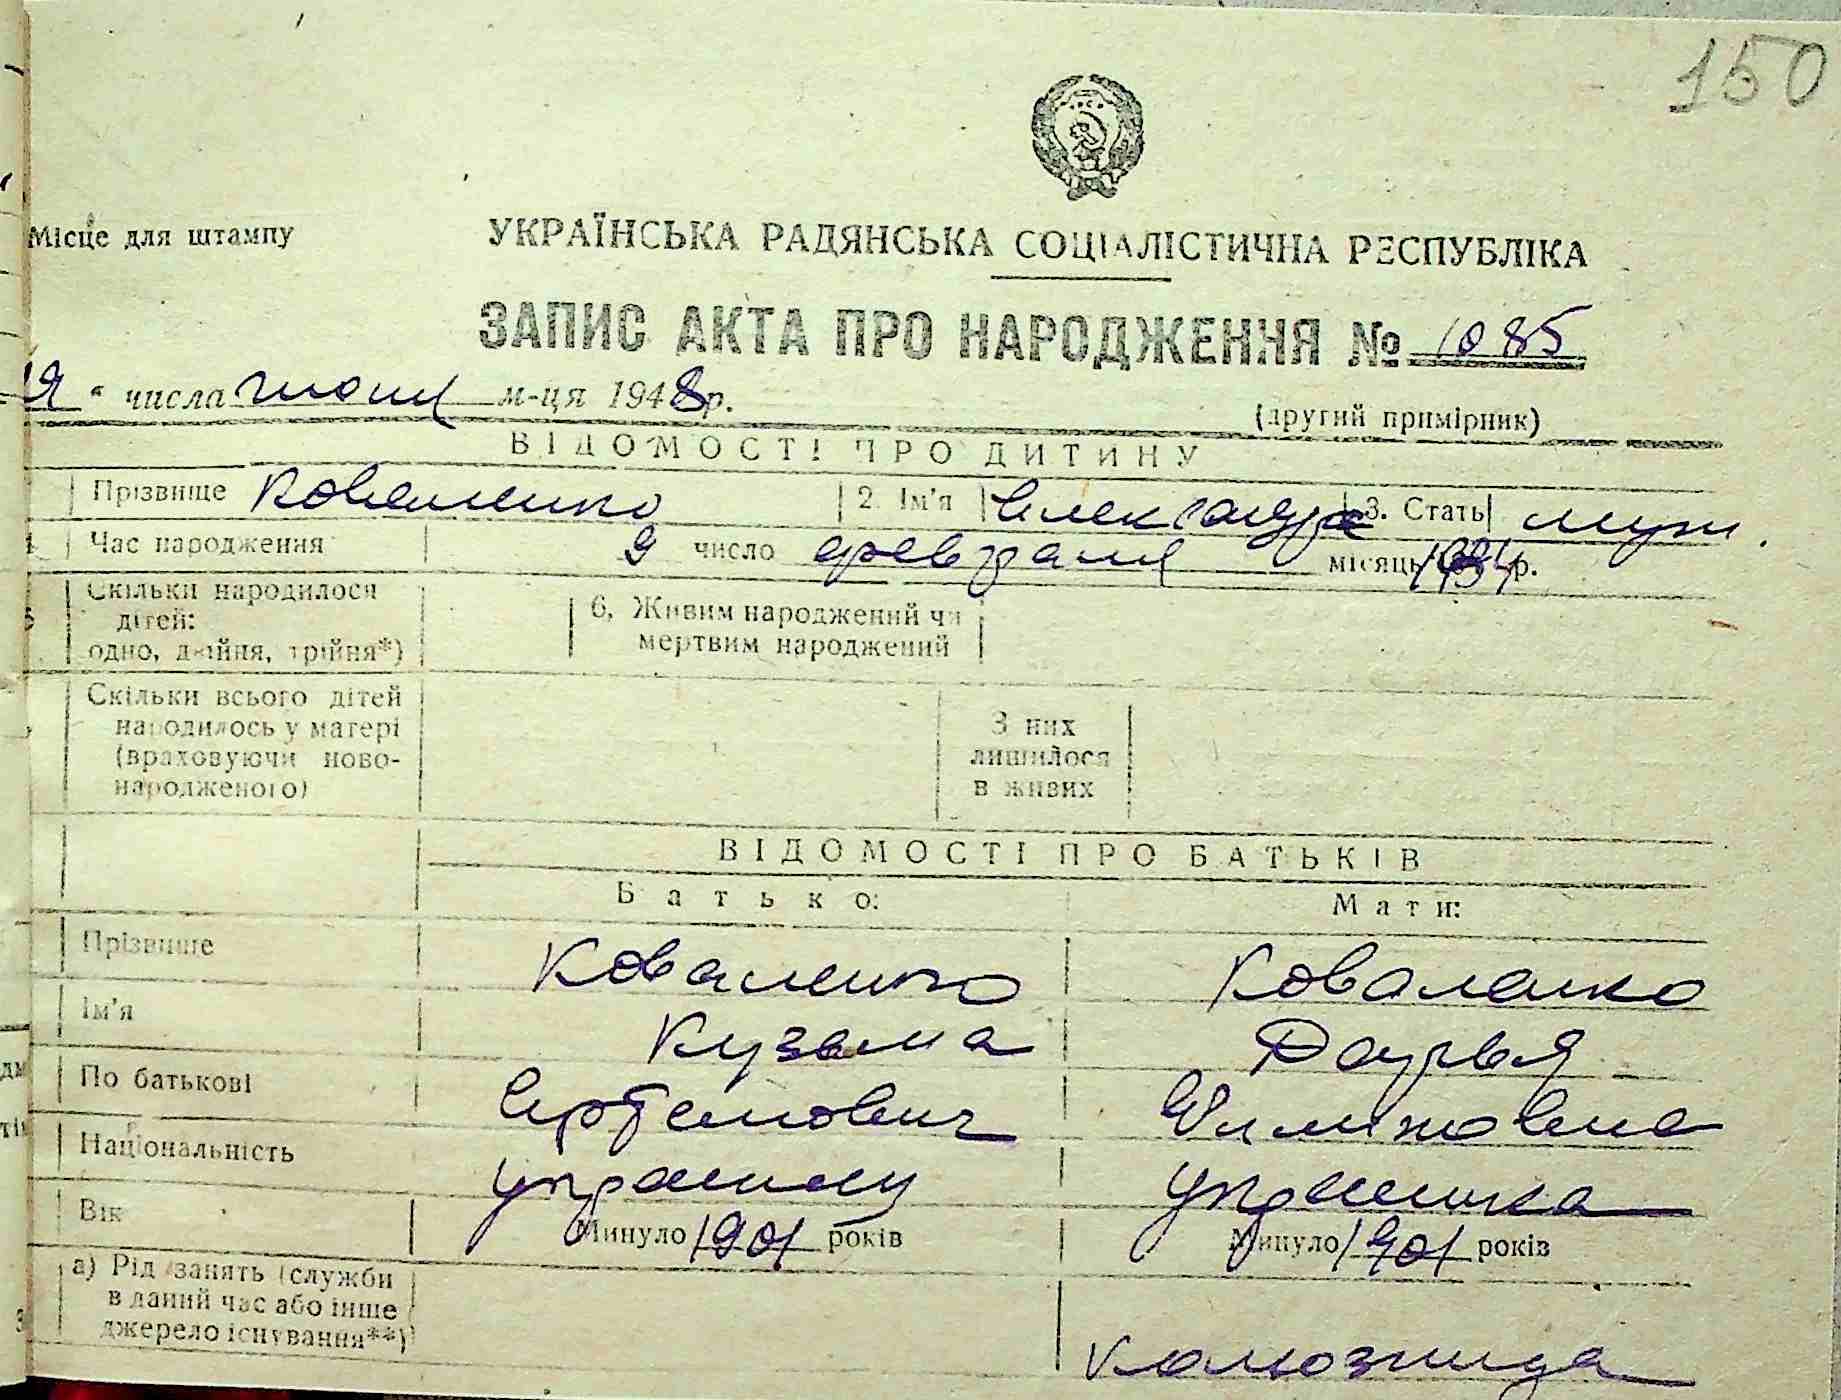 150
Місце для штампу
УКРАЇНСЬКА РАДЯНСЬКА СОЦІАЛІСТИЧНА РЕСПУБЛІКА
ЗАПИС АКТА ПРО НАРОДЖЕННЯ № 1085
9 " числа июня м-ця 1948 р.
(другий примірник)
ВІДОМОСТІ ПРО ДИТИНУ
Прізвище Коваленко 2. Ім'я Александр 3. Стать муж.
Час народження 9 число февраля місяць 1934 р.
Скільки народилося дітей: одно, двійня, трійня*) 6. Живим народжений чи мертвим народжений
Скільки всього дітей народилось у матері (враховуючи новонародженого) З них лишилося в живих
ВІДОМОСТІ ПРО БАТЬКІВ
Батько: Мати:
Прізвище Коваленко Коваленко
Ім'я Кузьма Дарья
По батькові Артемович
Національність украинец украинка
Вік Минуло 1901 років Минуло 1901 років
а) Рід занять (служби в даний час або інше джерело існування**)
колхозница